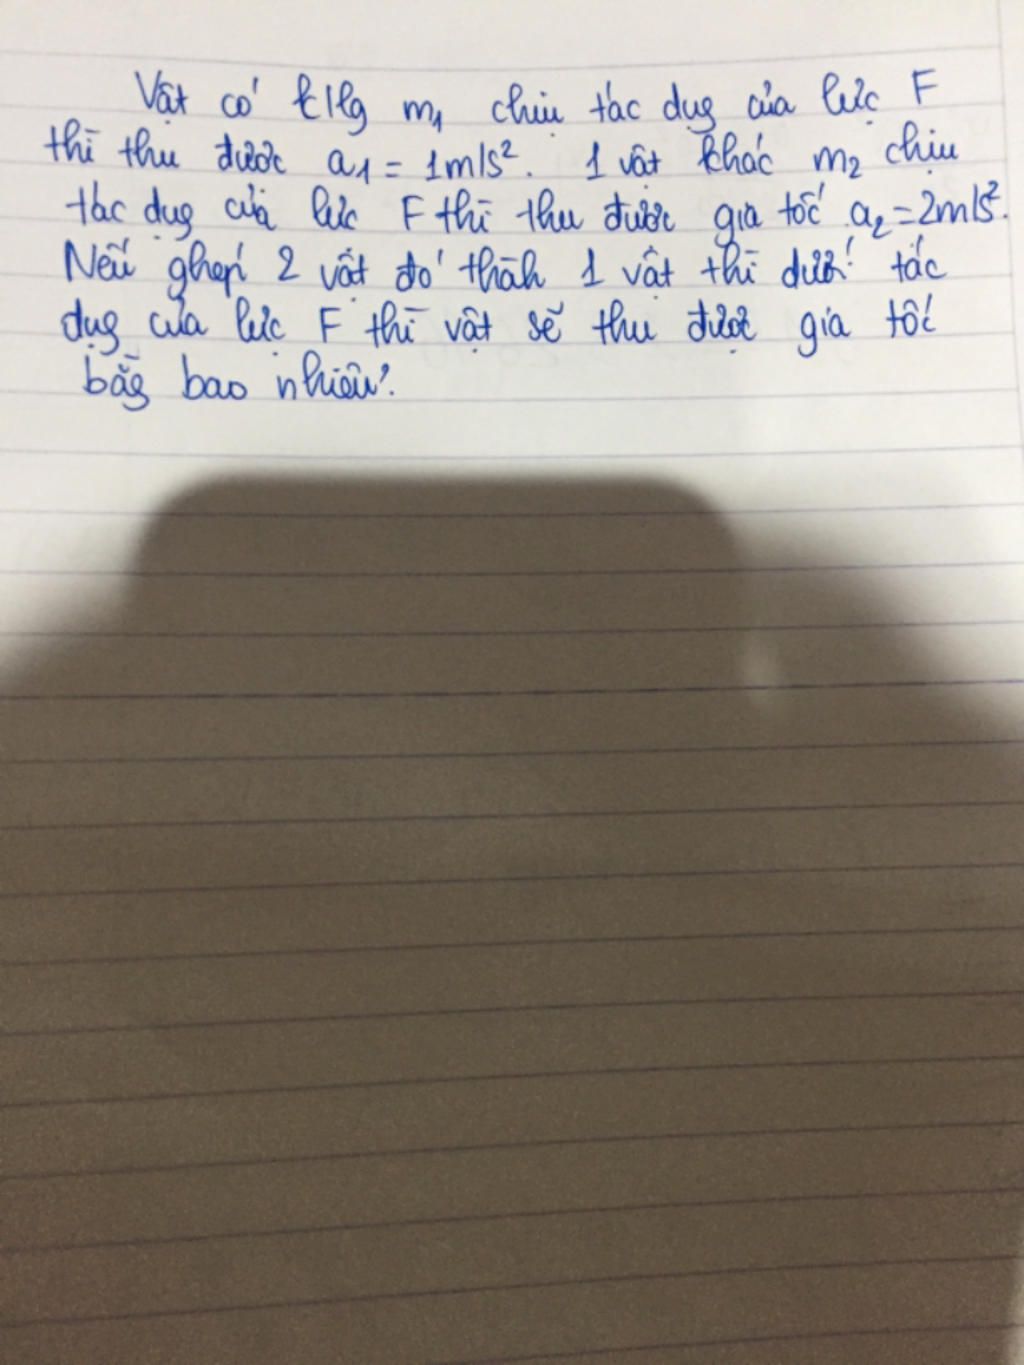 Vật có klg m₁ chịu tác dụg của lực F
thì thu được a₁ = 1m/s². 1 vật khác m₂ chịu
tác dụg của lực F thì thu được gia tốc a₂ = 2m/s².
Nếu ghép 2 vật đó thàh 1 vật thì dưới tác
dụg của lực F thì vật sẽ thu được gia tốc
bằg bao nhiêu?